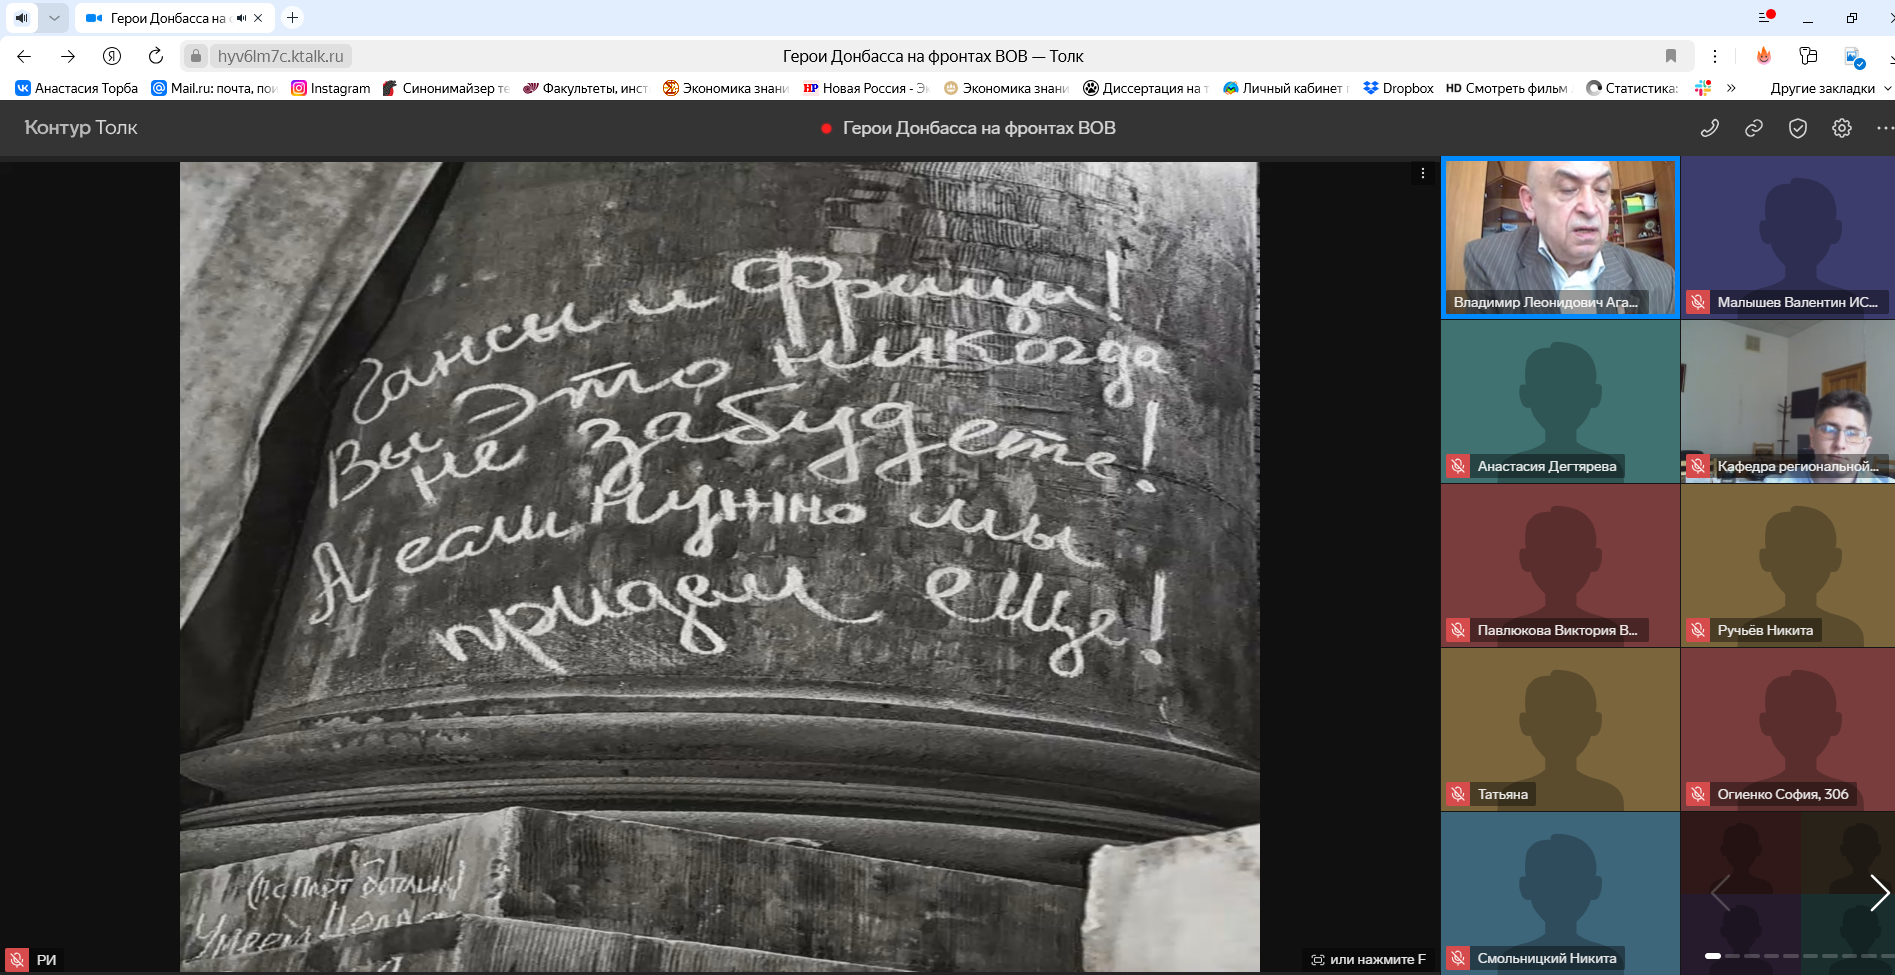 Герои Донбасса на
hyv6lm7c.ktalk.ru
Герои Донбасса на фронтах ВОВ — Толк
Анастасия Торба
Mail.ru: почта, пои
Instagram
Синонимайзер те
Факультеты, инст
Экономика знани
НР Новая Россия - Эк
Экономика знани
Диссертация на т
Личный кабинет
Dropbox
HD Смотреть фильм
Статистика:
Другие закладки
Контур Толк
Герои Донбасса на фронтах ВОВ
Гансы и Фрицы!
Вы это никогда
не забудете!
А если нужно мы
придем еще!
РИ
или нажмите F
Владимир Леонидович Ага...
Малышев Валентин ИС...
Анастасия Дегтярева
Кафедра региональной...
Павлюкова Виктория В...
Ручьёв Никита
Татьяна
Огиенко София, 306
Смольницкий Никита